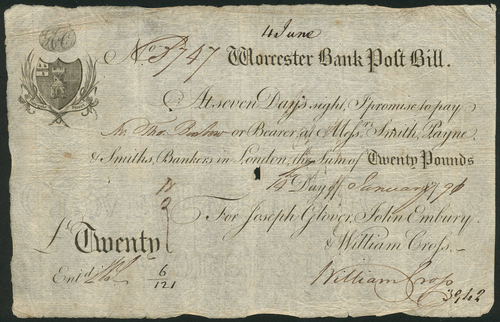 4 June
No. 3747 Worcester Bank Post Bill.
At seven Day's sight, I promise to pay
Mr. Thos. or Bearer at Mess.rs Smith, Payne
& Smiths, Bankers in London, the Sum of Twenty Pounds
Day of January 1796
For Joseph Glover, John Embury
£ Twenty
& William Cross.
Ent'd
6
121
William Cross
3942